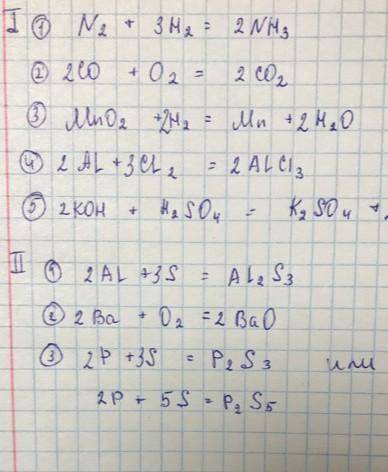 I ① N₂ + 3H₂ = 2NH₃
② 2CO + O₂ = 2CO₂
③ MnO₂ + 2H₂ = Mn + 2H₂O
④ 2AL + 3CL₂ = 2ALCl₃
⑤ 2KOH + H₂SO₄ = K₂SO₄ +
II ① 2AL + 3S = AL₂S₃
② 2Ba + O₂ = 2BaO
③ 2P + 3S = P₂S₃ или
2P + 5S = P₂S₅